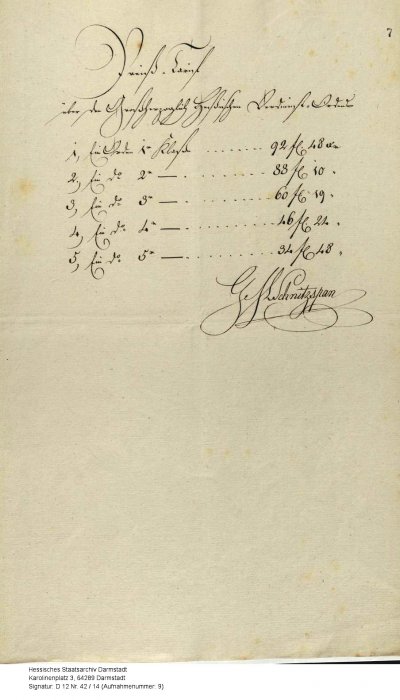 7
Preiß-Tarif
über die Großherzoglich Heßischen Verdienst-Orden
1, Ein Orden 1r Klaße ...... 92 fl 48 xr
2, Ein do 2r — ...... 88 fl 10 "
3, Ein do 3r — ...... 60 fl 19 "
4, Ein do 4r — ...... 46 fl 24 "
5, Ein do 5r — ...... 34 fl 48 "
Schnitzspan
Hessisches Staatsarchiv Darmstadt
Karolinenplatz 3, 64289 Darmstadt
Signatur: D 12 Nr. 42 / 14 (Aufnahmenummer: 9)